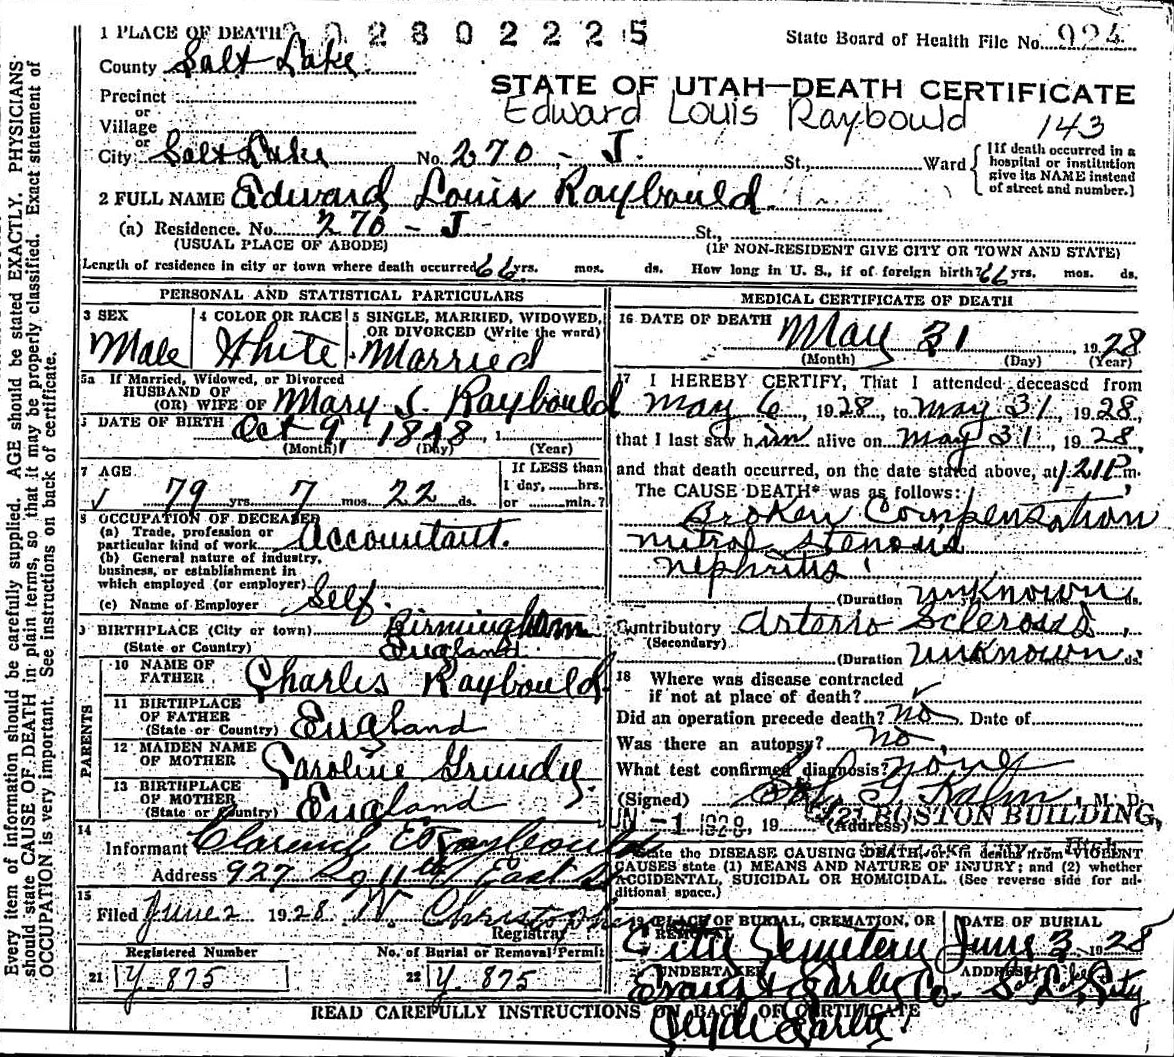 1 PLACE OF DEATH 2 0 2 8 0 2 2 2 5
State Board of Health File No. 924
County Salt Lake.
STATE OF UTAH—DEATH CERTIFICATE
Precinct
or
Edward Louis Raybould
143
Village
or
City Salt Lake No. 270 - J. St., Ward
[If death occurred in a
hospital or institution
give its NAME instead
of street and number.]
2 FULL NAME Edward Louis Raybould.
(a) Residence. No. 270 - J St.,
(USUAL PLACE OF ABODE) (IF NON-RESIDENT GIVE CITY OR TOWN AND STATE)
Length of residence in city or town where death occurred 66 yrs. mos. ds. How long in U. S., if of foreign birth? 66 yrs. mos. ds.
PERSONAL AND STATISTICAL PARTICULARS
3 SEX 4 COLOR OR RACE 5 SINGLE, MARRIED, WIDOWED,
OR DIVORCED (Write the word)
Male White Married
5a If Married, Widowed, or Divorced
HUSBAND OF
(OR) WIFE OF Mary S. Raybould
DATE OF BIRTH Oct 9, 1848, 1
(Month) (Day) (Year)
7 AGE
If LESS than
1 day, hrs.
or min.?
79 yrs. 7 mos. 22 ds.
8 OCCUPATION OF DECEASED
(a) Trade, profession or
particular kind of work Accountant.
(b) General nature of industry,
business, or establishment in
which employed (or employer)
(c) Name of Employer Self.
9 BIRTHPLACE (City or town) Birmingham
(State or Country) England.
PARENTS
10 NAME OF
FATHER Charles Raybould
11 BIRTHPLACE
OF FATHER
(State or Country) England
12 MAIDEN NAME
OF MOTHER Caroline Grundy.
13 BIRTHPLACE
OF MOTHER
(State or Country) England
14
Informant Clarence E Raybould
Address 927 So 11th East St
15
Filed June 2 1928 W Christopher
Registrar
Registered Number No. of Burial or Removal Permit
21 Y. 875 22 Y. 875
MEDICAL CERTIFICATE OF DEATH
16 DATE OF DEATH May 31 1928
(Month) (Day) (Year)
17 I HEREBY CERTIFY, That I attended deceased from
May 6, 1928, to May 31, 1928,
that I last saw him alive on May 31, 1928,
and that death occurred, on the date stated above, at 1.21 P.m.
The CAUSE DEATH* was as follows:
Broken Compensation
Mitral Stenosis
Nephritis
(Duration unknown ds.
Contributory Arterio Sclerosis,
(Secondary)
(Duration unknown ds.
18 Where was disease contracted
if not at place of death?
Did an operation precede death? no Date of
Was there an autopsy? no,
What test confirmed diagnosis? none
(Signed) Sol. G Kahn, M. D.
JUN -1 1928, 19 (Address) BOSTON BUILDING,
State the DISEASE CAUSING DEATH, or, in deaths from VIOLENT
CAUSES state (1) MEANS AND NATURE OF INJURY; and (2) whether
ACCIDENTAL, SUICIDAL OR HOMICIDAL. (See reverse side for ad-
ditional space.)
19 PLACE OF BURIAL, CREMATION, OR
REMOVAL
DATE OF BURIAL
City Cemetery June 3 1928
UNDERTAKER ADDRESS
Evans & Early Co. Salt Lake City
READ CAREFULLY INSTRUCTIONS ON BACK OF CERTIFICATE
Clyde Early
Every item of information should be carefully supplied. AGE should be stated EXACTLY. PHYSICIANS
should state CAUSE OF DEATH in plain terms, so that it may be properly classified. Exact statement of
OCCUPATION is very important. See instructions on back of certificate.